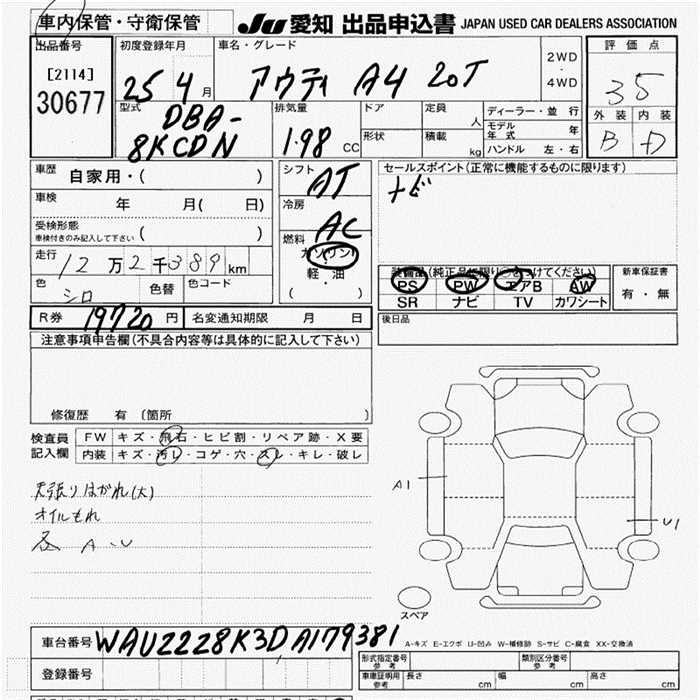 車内保管・守衛保管
JU 愛知 出品申込書 JAPAN USED CAR DEALERS ASSOCIATION
出品番号
[2114]
30677
初度登録年月
25 4 月
車名・グレード
アウディ A4 2.0T
2WD
・
4WD
評価点
35
外装 内装
B D
型式
DBA-
8KCDN
排気量
1.98 CC
ドア
形状
定員
人
積載
kg
ディーラー・並行
モデル年式 年
ハンドル 左・右
車歴 自家用・( )
車検 年 月( 日)
受検形態
車検付きのみ記入して下さい ( )
走行 12 万 2 千 389 km
色 シロ 色替 色コード
R券 19720 円 名変通知期限 月 日
シフト AT
冷房 AC
燃料
ガソリン
軽・油
( )
セールスポイント(正常に機能するものに限ります)
ナビ
装備品(純正品に限り○をつけてください)
PS PW エアB AW
SR ナビ TV カワシート
新車保証書
有・無
後日品
注意事項申告欄(不具合内容等は具体的に記入して下さい)
修復歴 有 〔箇所 〕
検査員
記入欄
FW キズ・飛石・ヒビ割・リペア跡・X要
内装 キズ・汚レ・コゲ・穴・スレ・キレ・破レ
天張りはがれ(大)
オイルもれ
各 A・U
A1
U1
スペア
車台番号 WAUZZZ8K3DA179381
登録番号
A-キズ E-エクボ U-凹み W-補修跡 S-サビ C-腐食 XX-交換済
形式指定番号
参考
類別区分番号
参考
車庫証明用
参考
長さ cm 幅 cm 高さ cm